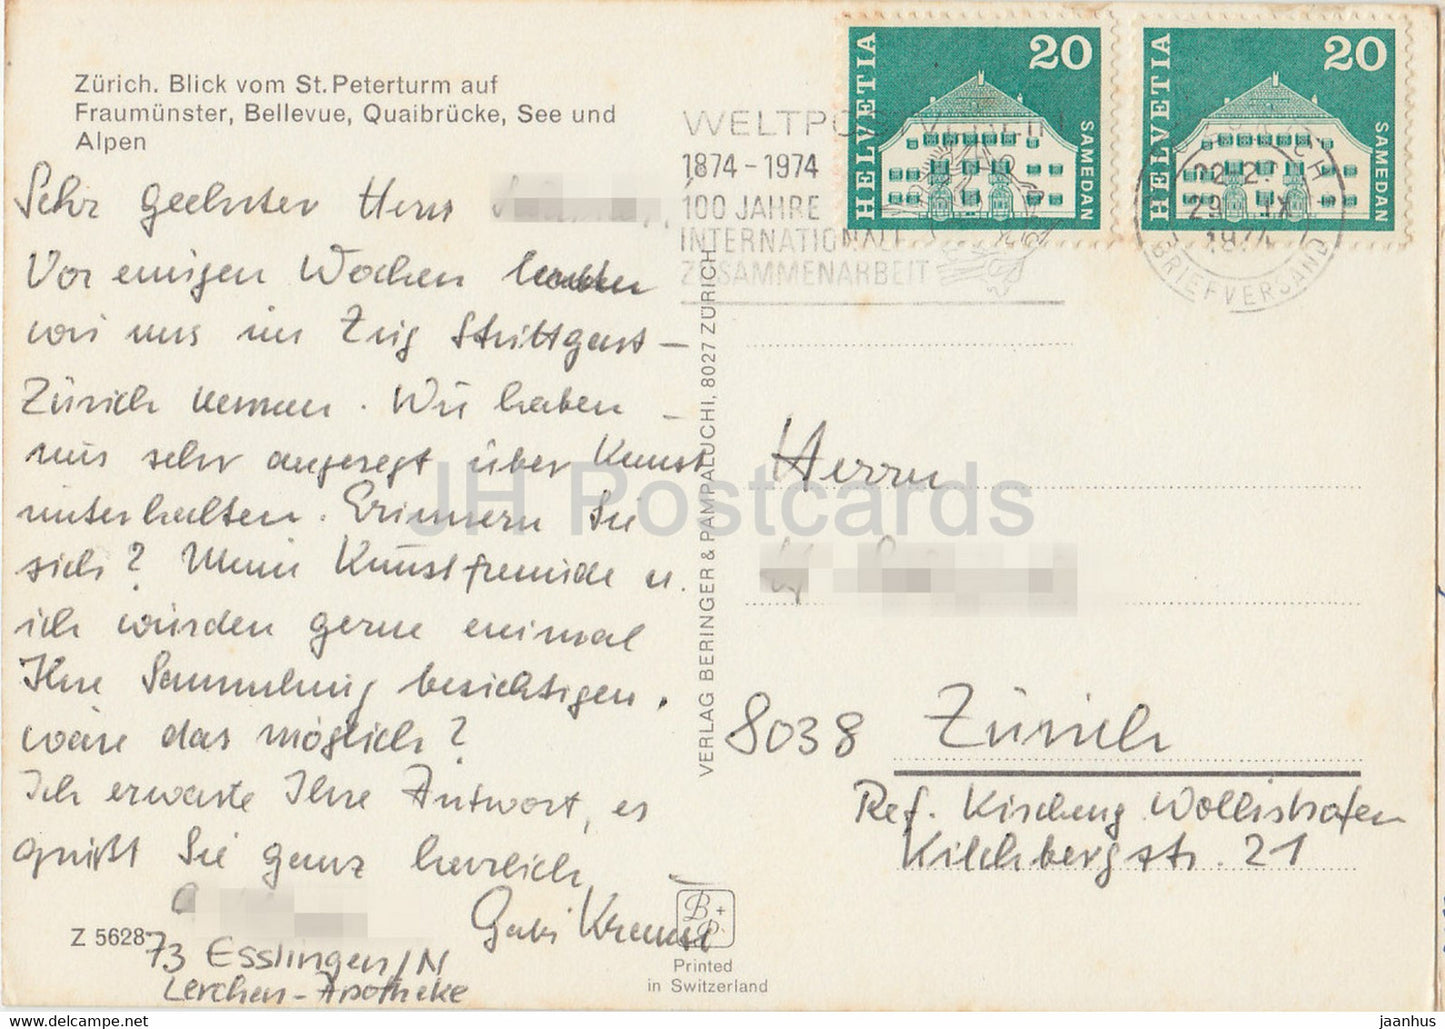 Zürich. Blick vom St. Peterturm auf
Fraumünster, Bellevue, Quaibrücke, See und
Alpen
Sehr geehrter Herr
Vor einigen Wochen
wir uns im Zug Stuttgart –
Zürich kennen. Wir haben
uns sehr angeregt über Kunst
unterhalten. Erinnern Sie
sich? Meine Kunstfreunde u.
ich würden gerne einmal
Ihre Sammlung besichtigen,
wäre das möglich?
Ich erwarte Ihre Antwort, es
grüßt Sie ganz herzlich
Gabi
73 Esslingen/N
Lerchen-Apotheke
Z 5628
VERLAG BERINGER & PAMPALUCHI, 8027 ZÜRICH
WELTPOSTVEREIN
1874 – 1974
100 JAHRE
INTERNATIONALE
ZUSAMMENARBEIT
HELVETIA
20
SAMEDAN
HELVETIA
20
SAMEDAN
29. IX
1974
BRIEFVERSAND
Herrn
8038 Zürich
Ref. Kircheng. Wollishofen
Kilchbergstr. 21
B+P
Printed
in Switzerland
JH Postcards
jaanhus — https://www.jhpostcards.com